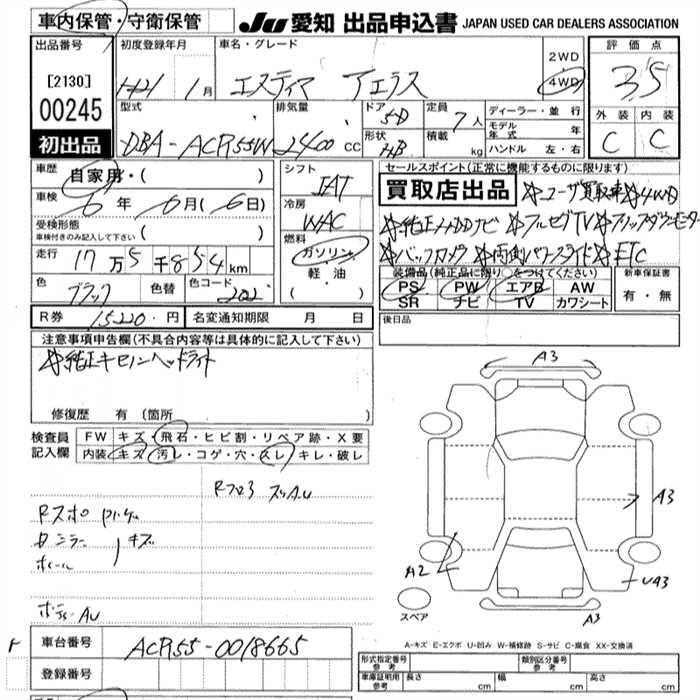 車内保管・守衛保管
JU 愛知 出品申込書 JAPAN USED CAR DEALERS ASSOCIATION
出品番号
[2130]
00245
初出品
初度登録年月
H21 1月
車名・グレード
エスティマ アエラス
2WD
4WD
評価点
3.5
外装 内装
C C
型式
DBA-ACR55W
排気量
2400 CC
ドア 5D
形状 HB
定員 7人
積載 kg
ディーラー・並行
モデル年式 年
ハンドル 左・右
車歴
自家用・( )
車検
6年 6月 (6日)
受検形態
車検付きのみ記入して下さい ( )
走行 17万5千854km
色 ブラック
色替
色コード 202
シフト
IAT
冷房
WAC
燃料
ガソリン
軽油
( ・ )
セールスポイント(正常に機能するものに限ります)
買取店出品 ☆ユーザー買取車☆4WD
☆純正HDDナビ☆フルセグTV☆フリップダウンモニター
☆バックカメラ☆両側パワースライド☆ETC
装備品(純正品に限り○をつけてください)
PS PW エアB AW
SR ナビ TV カワシート
新車保証書
有・無
R券 15220円
名変通知期限 月 日
後日品
注意事項申告欄(不具合内容等は具体的に記入して下さい)
☆純正キセノンヘッドライト
修復歴 有(箇所
検査員記入欄
FW キズ・飛石・ヒビ割・リペア跡・X要
内装 キズ・汚レ・コゲ・穴・スレ・キレ・破レ
Aウ
キズ
ホイール
ボディーAU
A3
A3
A2
UA3
A3
スペア
A-キズ E-エクボ U-凹み W-補修跡 S-サビ C-腐食 XX-交換済
車台番号 ACR55-0018665
登録番号
形式指定番号 参考
類別区分番号 参考
車庫証明用 参考 長さ cm 幅 cm 高さ cm